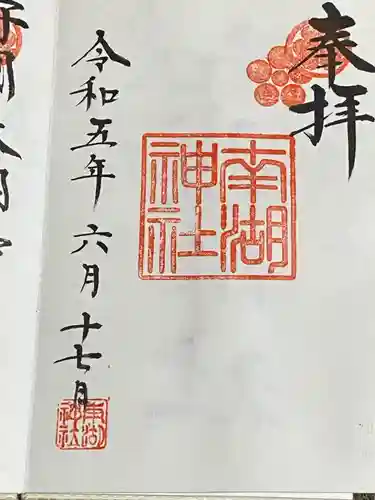 奉拝
南湖神社
令和五年六月十七日
南湖神社